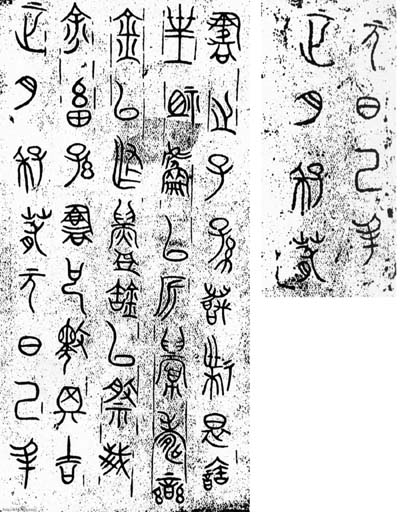 正月季春元日己丑
余畜孫書也擇其吉
金以作鑄缶以祭我
皇祖吾以祈眉壽欒
書之子孫萬世是寶
正月季春
元日己丑